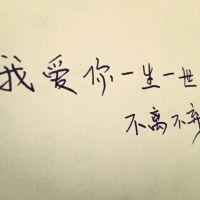 我爱你一生一世
不离不弃